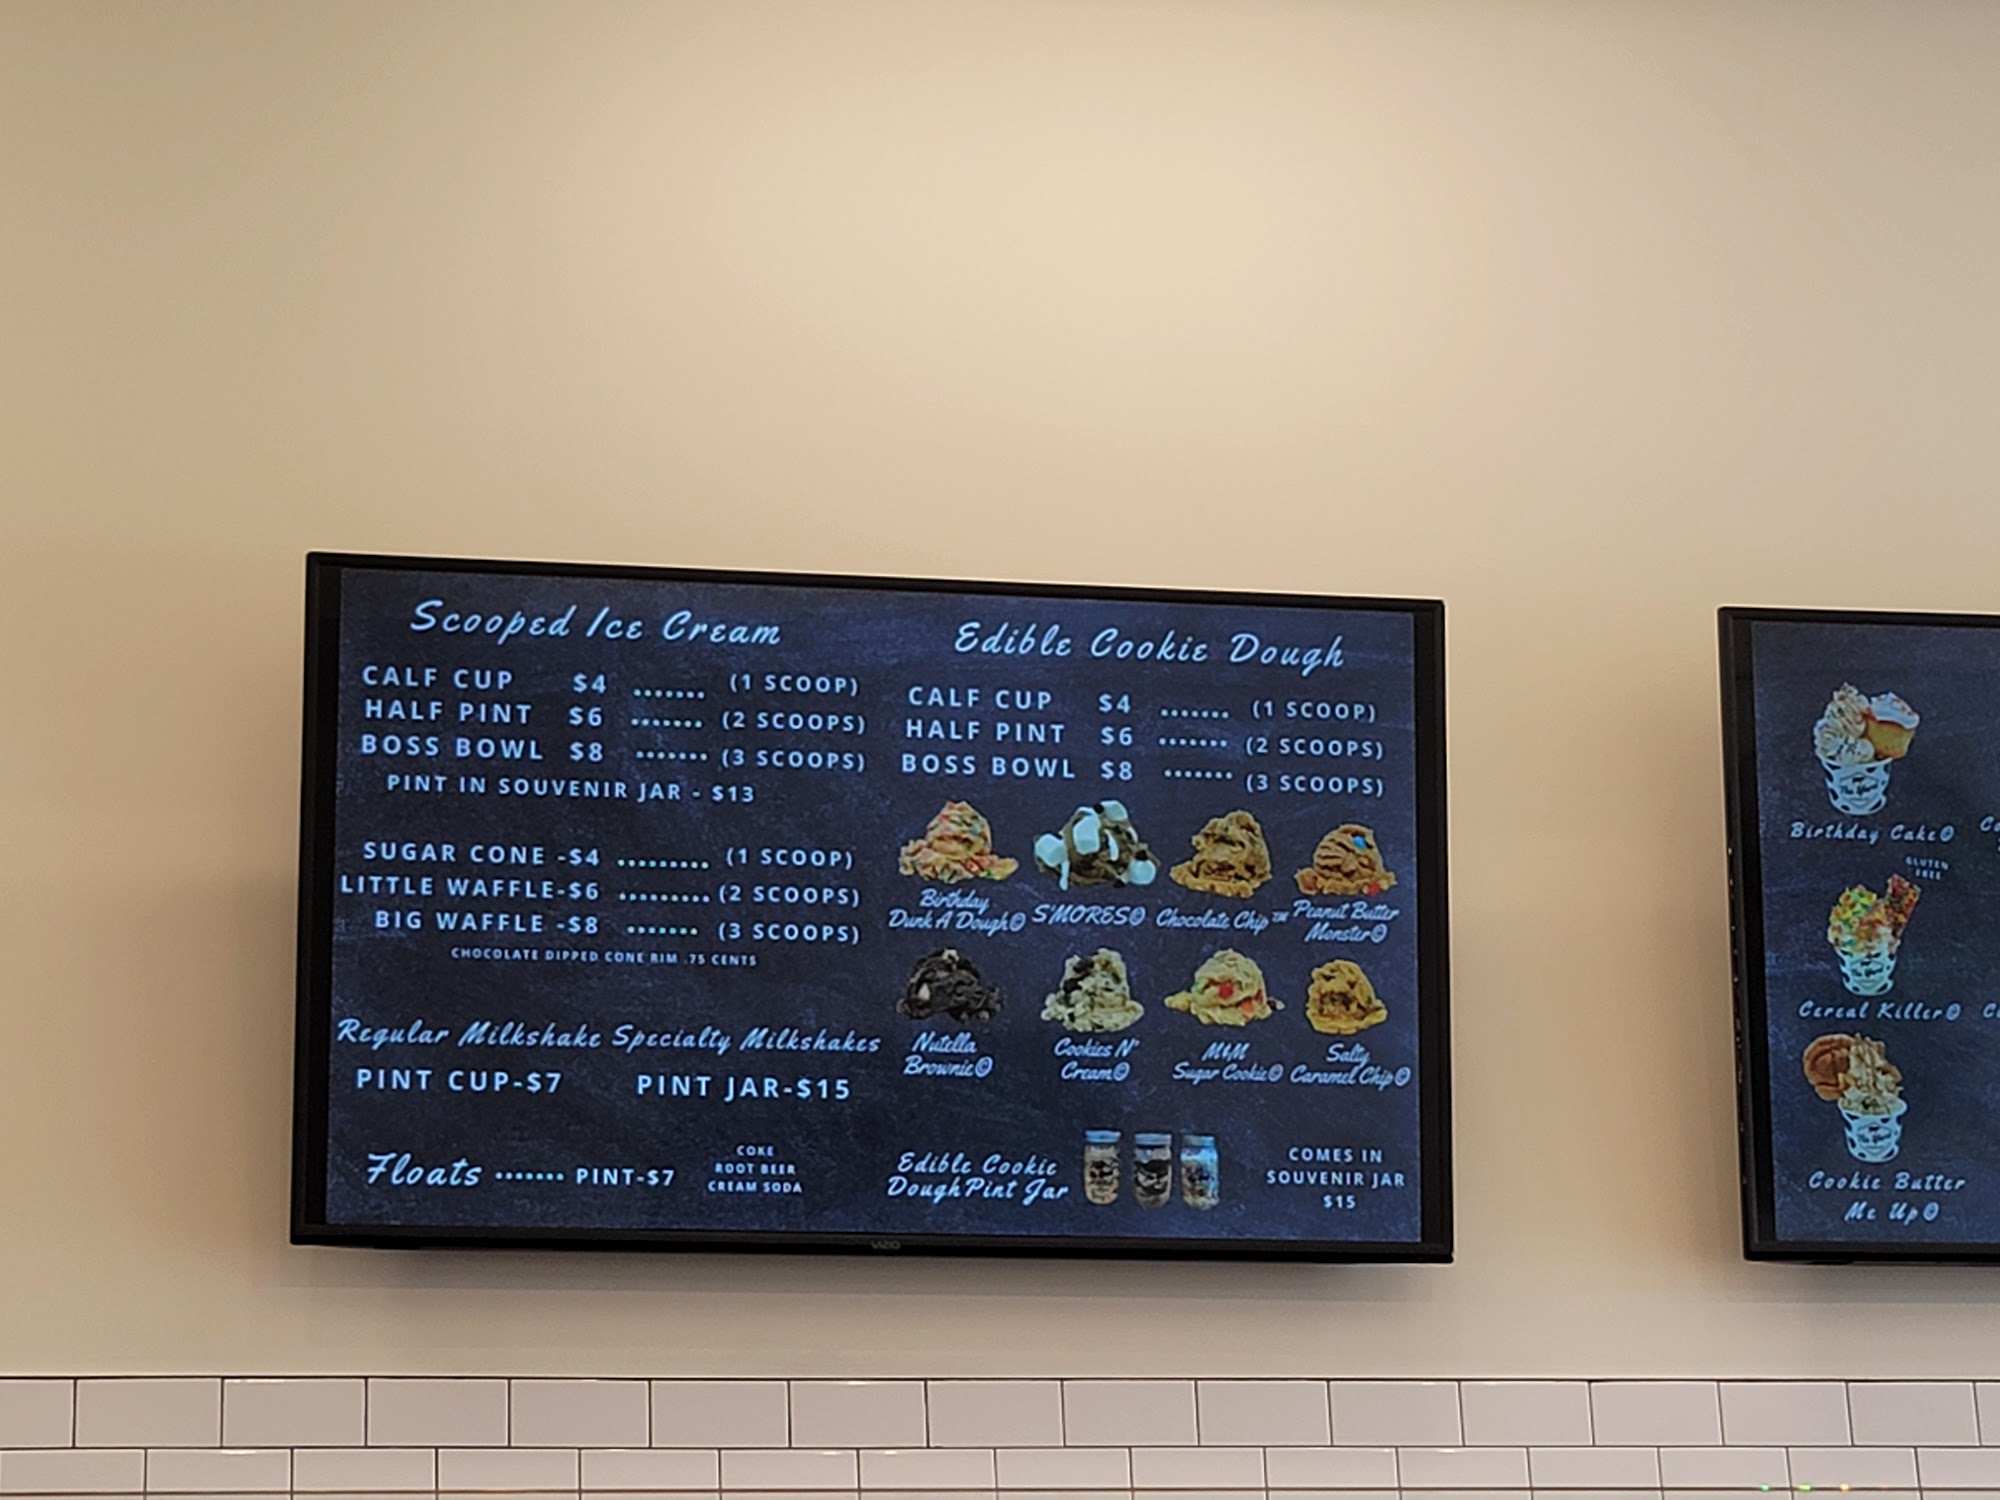 Scooped Ice Cream
CALF CUP $4 ....... (1 SCOOP)
HALF PINT $6 ....... (2 SCOOPS)
BOSS BOWL $8 ....... (3 SCOOPS)
PINT IN SOUVENIR JAR - $13
SUGAR CONE -$4 ......... (1 SCOOP)
LITTLE WAFFLE-$6 ......... (2 SCOOPS)
BIG WAFFLE -$8 ....... (3 SCOOPS)
CHOCOLATE DIPPED CONE RIM .75 CENTS
Regular Milkshake Specialty Milkshakes
PINT CUP-$7 PINT JAR-$15
Floats ....... PINT-$7
COKE
ROOT BEER
CREAM SODA
Edible Cookie Dough
CALF CUP $4 ....... (1 SCOOP)
HALF PINT $6 ....... (2 SCOOPS)
BOSS BOWL $8 ....... (3 SCOOPS)
Birthday
Dunk A Dough©
S'MORES©
Chocolate Chip™
Peanut Butter
Monster©
Nutella
Brownie©
Cookies N'
Cream©
M&M
Sugar Cookie©
Salty
Caramel Chip©
Edible Cookie
Dough Pint Jar
COMES IN
SOUVENIR JAR
$15
VIZIO
Birthday Cake©
GLUTEN
FREE
Cereal Killer©
Cookie Butter
Me Up©